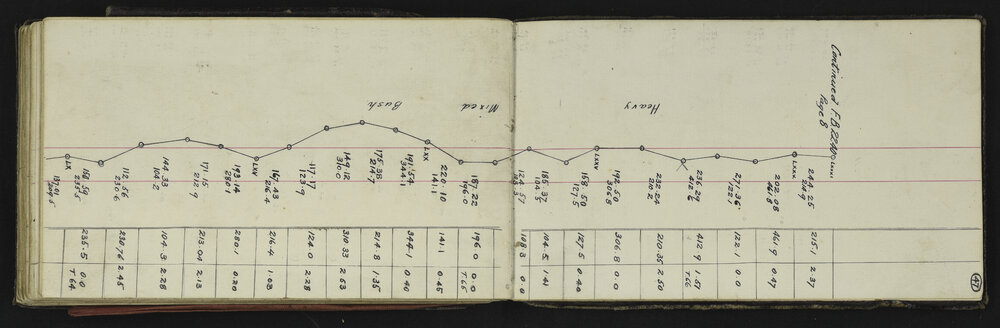 Continued F.B. 2240
Page 8
47
Heavy
Mixed
Bush
LX
LXV
LXX
LXXV
LXXX
168.59
235.5
112.56
230.6
144.33
104.2
171.15
212.9
193.14
280.1
167.43
216.4
117.17
123.7
149.12
310.0
175.38
214.7
191.54
344.1
220.10
141.1
187.22
196.0
124.57
108.3
185.37
104.5
168.50
127.5
199.50
306.8
232.24
210.2
236.29
412.6
271.36
122.1
202.08
461.8
244.25
214.9
235.5 0.0
T.64
230.76 2.45
104.3 2.28
213.04 2.13
280.1 0.20
216.4 1.03
124.0 2.28
310.33 2.53
214.8 1.35
344.1 0.40
141.1 0.45
196.0 0.0
T.65
108.3 0.0
104.5 1.41
127.5 0.40
306.8 0.0
210.35 2.50
412.9 1.57
T.66
122.1 0.0
461.9 0.47
215.1 2.37